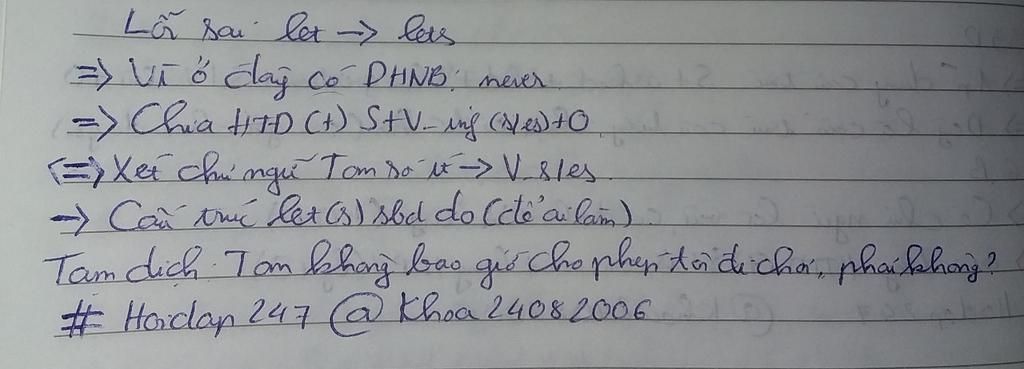 Lỗi sai let -> lets
=> Vì ở đây có DHNB: never
=> Chia HTD (+) S+V_ inf (s/es) + O
(=> Xét chủ ngữ Tom số ít -> V_s/es
-> Cấu trúc let(s) sbd do (để ai làm)
Tạm dịch: Tom không bao giờ cho phép tôi đi chơi, phải không?
# Hoidap 247 @ Khoa 24082006